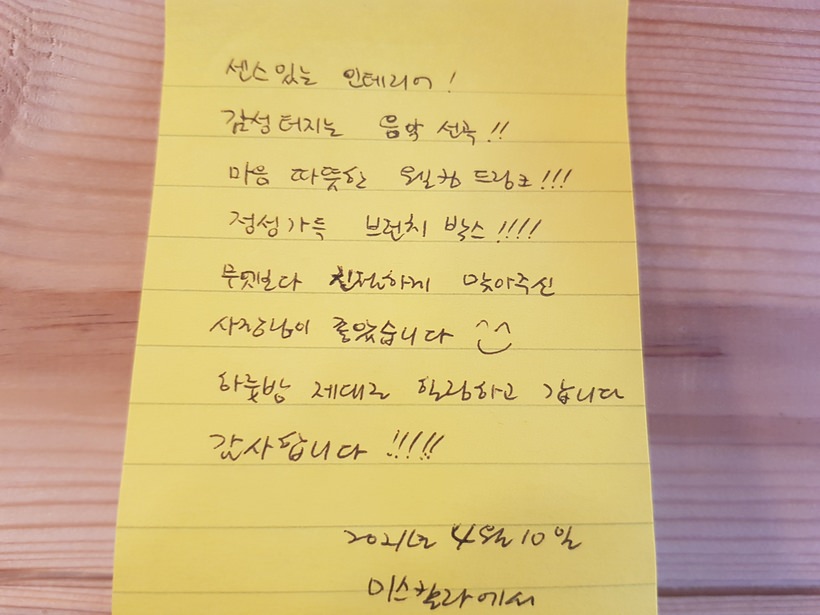 센스있는 인테리어!
감성터지는 음악 선곡!!
마음 따뜻한 웰컴 드링크!!!
정성가득 브런치 박스!!!!
무엇보다 친절하게 맞아주신
사장님이 좋았습니다 ^^
하룻밤 제대로 힐링하고 갑니다
감사합니다!!!!!
2021년 4월 10일
미스칼라에서